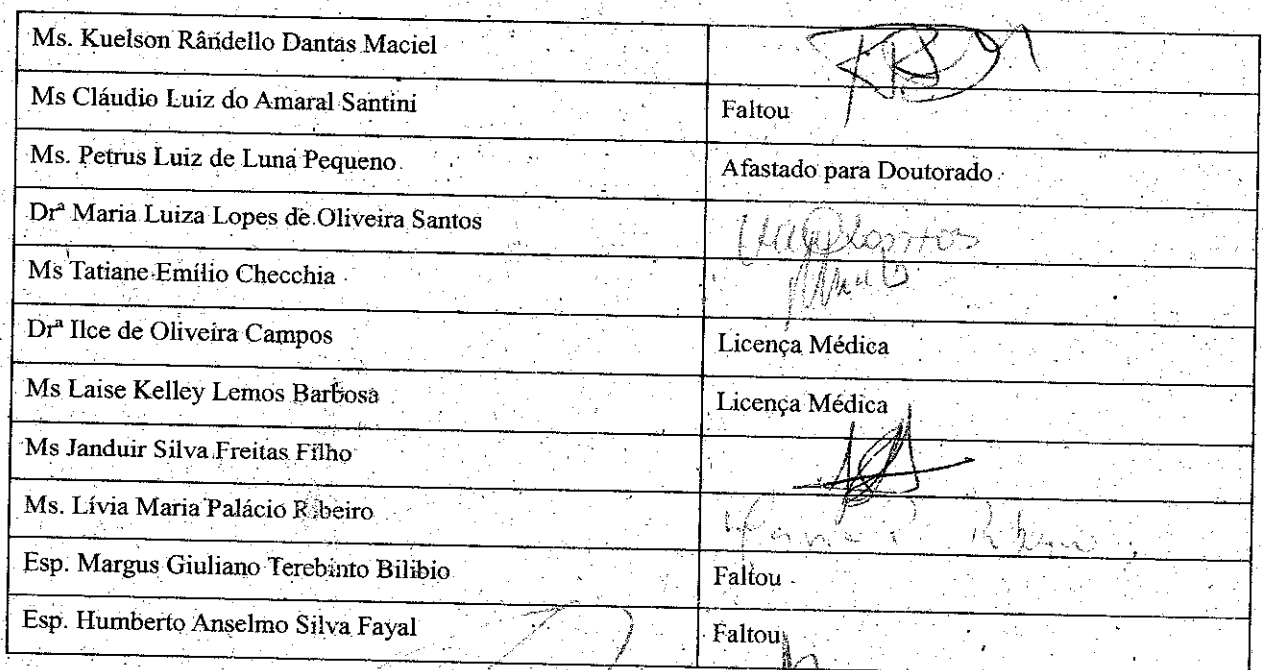 Ms. Kuelson Rândello Dantas Maciel
Ms Cláudio Luiz do Amaral Santini Faltou
Ms. Petrus Luiz de Luna Pequeno Afastado para Doutorado
Drª Maria Luiza Lopes de Oliveira Santos
Ms Tatiane Emílio Checchia
Drª Ilce de Oliveira Campos Licença Médica
Ms Laise Kelley Lemos Barbosa Licença Médica
Ms Janduir Silva Freitas Filho
Ms. Lívia Maria Palácio Ribeiro
Esp. Margus Giuliano Terebinto Bilibio Faltou
Esp. Humberto Anselmo Silva Fayal Faltou